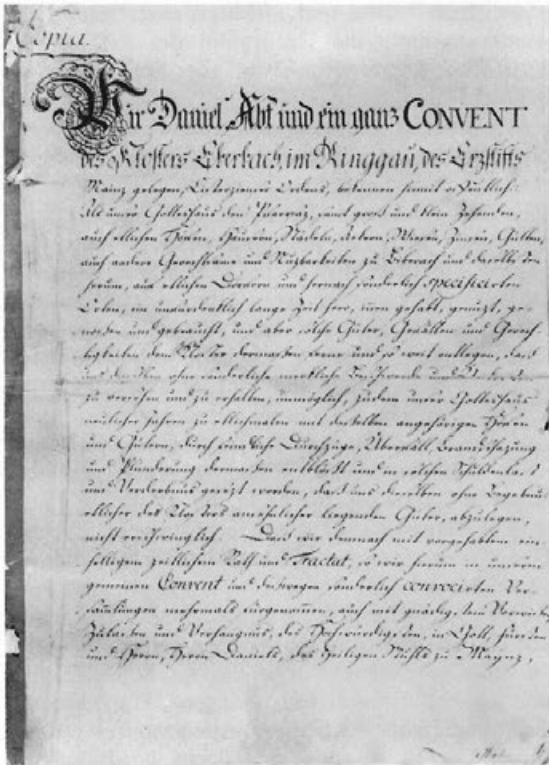 Copia.
Wir Daniel Abt und ein ganz CONVENT
des Klosters Eberbach, im Ringgau, des Erzstifts
Mainz gelegen, Cisterzienser Ordens, bekennen hiemit öffentlich:
Als unser Gotteshaus den Pfarrsaz, samt groß und klein Zehenden,
auch etlichen Höfen, Häusern, Wäldern, Äckern, Wiesen, Zinsen, Gülten,
auch andere Gerechtsame und Nuzbarkeiten zu Biberach und derselben Enden
herum, auch etlichen Dörfern und hernach sonderlich specificirten
Orten, ein unfürdenklich lange Zeit hero, innen gehabt, genuzt, ge-
noßen und gebraucht, und aber solche Güter, Gefällen und Gerech-
tigkeiten dem Kloster dermaßen ferne und so weit entlegen, das
uns dieselben ohne sonderliche merkliche Beschwerde und
zu versehen und zu erhalten, unmöglich, zudem unser Gotteshaus
neulicher Jahren zu etlichmalen mit desselben angehörigen Höfen
und Gütern, durch feindliche Durchzüge, Überfäll, Brandschazung
und Plünderung dermaßen entblößt und in solchen Schuldenlast
und Verderbnus gesezt worden, daß uns derselben ohne Begebnus
etlicher des Klosters ansehnlicher liegenden Güter, abzulegen,
nicht erschwinglich. Daß wir demnach mit vorgehabtem ein-
helligem zeitlichem Rath und Tractat, so wir hierum in unserm
gemeinen Convent und deswegen sonderlich convocirten Ver-
samlungen mehrmals fürgenommen, auch mit gnädigstem
Zulaßen und Verhängnus, des Hochwürdigsten, in Gott, Fürsten
und Herrn, Herrn Daniels, des Heiligen Stuhls zu Maynz,